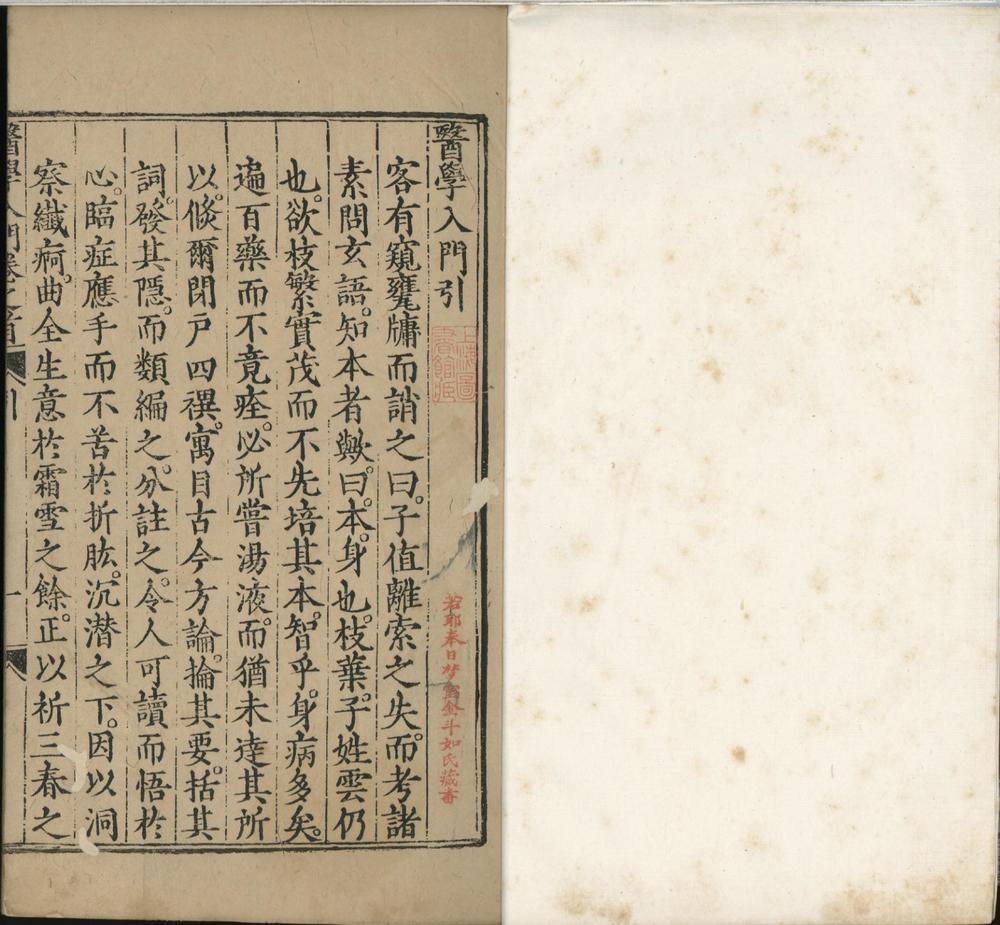 醫學入門引
上海圖書館藏
若耶秦曰夢室金斗如氏藏書
客有窺甕牖而誚之曰。子值離索之失。而考諸
素問玄語。知本者歟。曰。本。身也。枝葉。子姓雲仍
也。欲枝繁實茂而不先培其本。智乎。身病多矣。
遍百藥而不竟痊。必所嘗湯液。而猶未達其所
以。倐爾閉戶四禩。寓目古今方論。掄其要。括其
詞。發其隱。而類編之。分註之。令人可讀而悟於
心。臨症應手而不苦於折肱。沉潜之下。因以洞
察纎痾。曲全生意於霜雪之餘。正以祈三春之
醫學入門卷之首 引 一